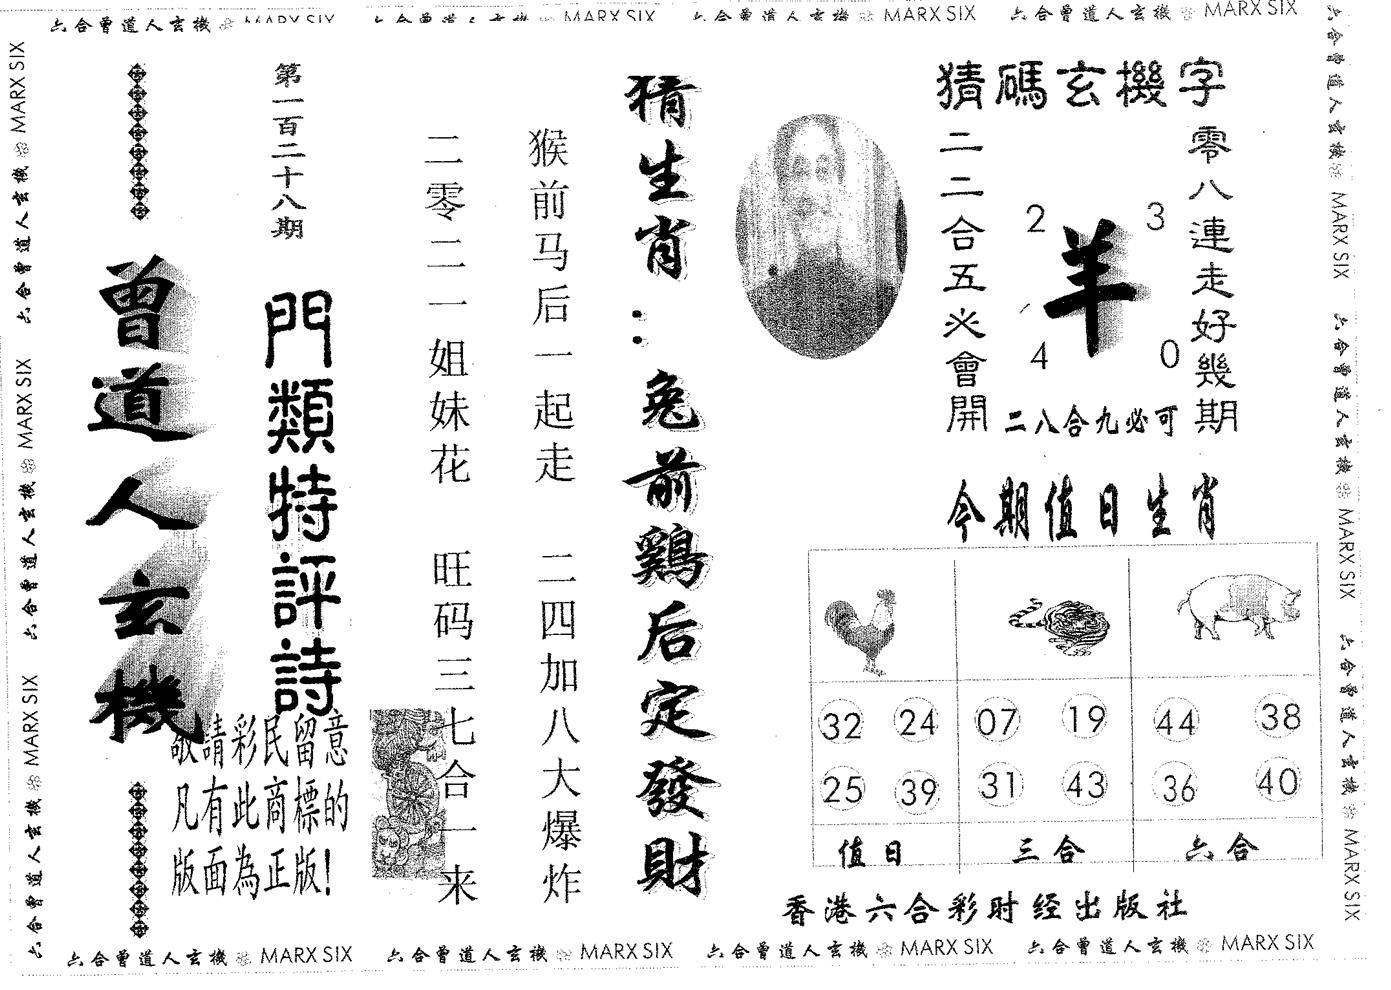 六合曾道人玄機 MARX SIX 六合曾道人玄機 MARX SIX 六合曾道人玄機 MARX SIX 六合曾道人玄機 MARX SIX
六合曾道人玄機 MARX SIX 六合曾道人玄機 MARX SIX 六合曾道人玄機 MARX SIX
曾道人玄機
第一百二十八期
門類特評詩
敬請彩民留意
凡有此商標的
版面為正版!
猜生肖:兔前鷄后定發財
猴前马后一起走 二四加八大爆炸
二零二一姐妹花 旺码三七合一来
猜碼玄機字
零八連走好幾期
二二合五必會開
2 3
羊
4 0
二八合九必可
今期值日生肖
32 24 07 19 44 38
25 39 31 43 36 40
值日 三合 六合
香港六合彩时经出版社
六合曾道人玄機 MARX SIX 六合曾道人玄機 MARX SIX 六合曾道人玄機 MARX SIX
六合曾道人玄機 MARX SIX 六合曾道人玄機 MARX SIX 六合曾道人玄機 MARX SIX 六合曾道人玄機 MARX SIX